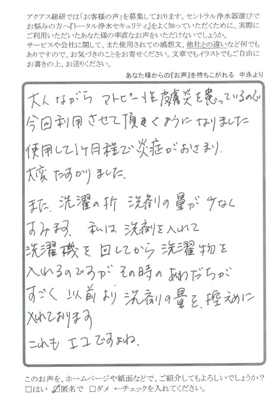 アクアス総研では「お客様の声」を募集しております。セントラル浄水器選びで
お悩みの方へ『トータル浄水セキュリティ®』をより知っていただくために、実際に
ご利用いただいたあなた様の率直なお声をいただけないでしょうか。
サービスや会社に関して、また使用されての感想文、他社との違いなど何でも
ありますので、お気づきのことをお寄せください。文章でもイラストでもご自由に
お書きの上、お送りください。
あなた様からの『お声』を待ちこがれる 中永より
大人ながら アトピー性皮膚炎を患っているので
今回利用させて頂くようになりました
使用して1ケ月程で炎症がおさまり、
大変たすかりました。
また、洗濯の折 洗剤の量が少なく
すみます、私は洗剤を入れて
洗濯機を回してから洗濯物を
入れるのですが その時のあわだちが
すごく 以前より 洗剤の量を、控えめに
入れております
これも エコですよね。
このお声を、ホームページや紙面などで、ご紹介してもよろしいでしょうか？
□はい ☑匿名で □ダメ ←チェックを入れてください。